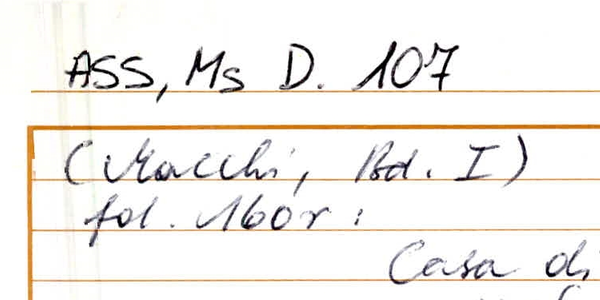 ASS, Ms D. 107
(Macchi, Bd. I)
fol. 160r:
Casa di